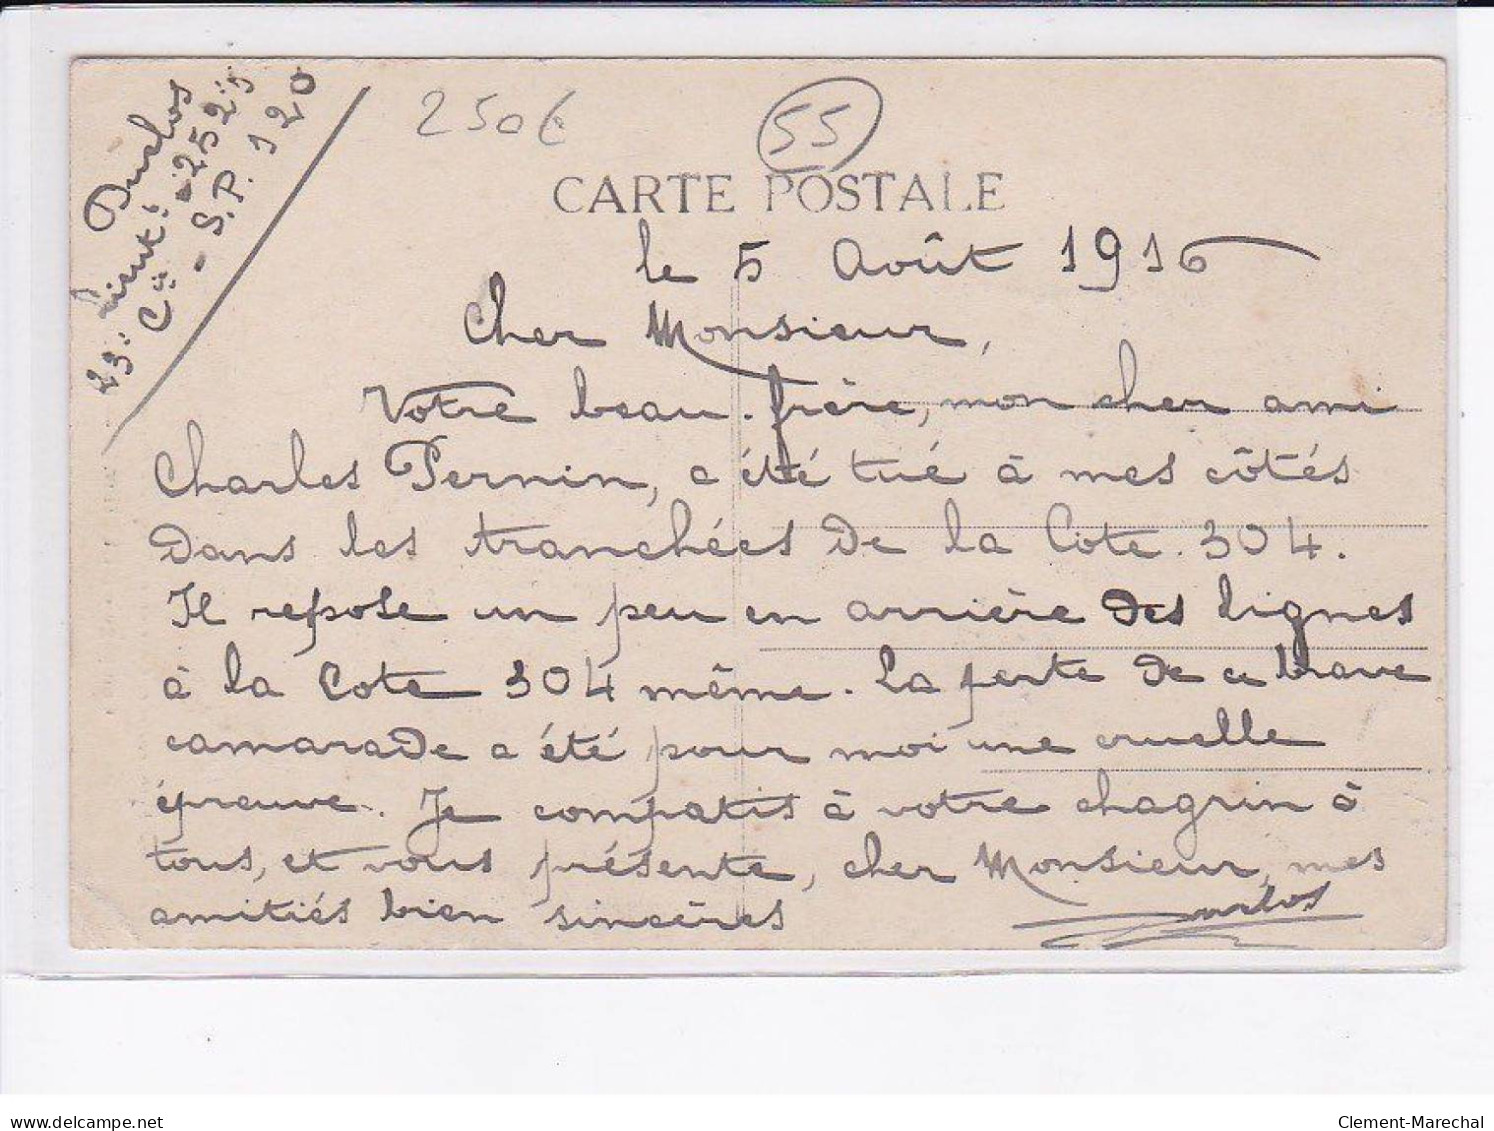 Duclos
Lieutt - 252e
23. Cie - S.P. 120
250€
55
CARTE POSTALE
le 5 Août 1916
Cher Monsieur,
Votre beau-frère, mon cher ami
Charles Pernin, a été tué à mes côtés
dans les tranchées de la Cote 304.
Il repose un peu en arrière des lignes
à la Cote 304 même. La perte de ce brave
camarade a été pour moi une cruelle
épreuve. Je compatis à votre chagrin à
tous, et vous présente, cher Monsieur, mes
amitiés bien sincères
Duclos
delcampe.net
Clement-Marechal